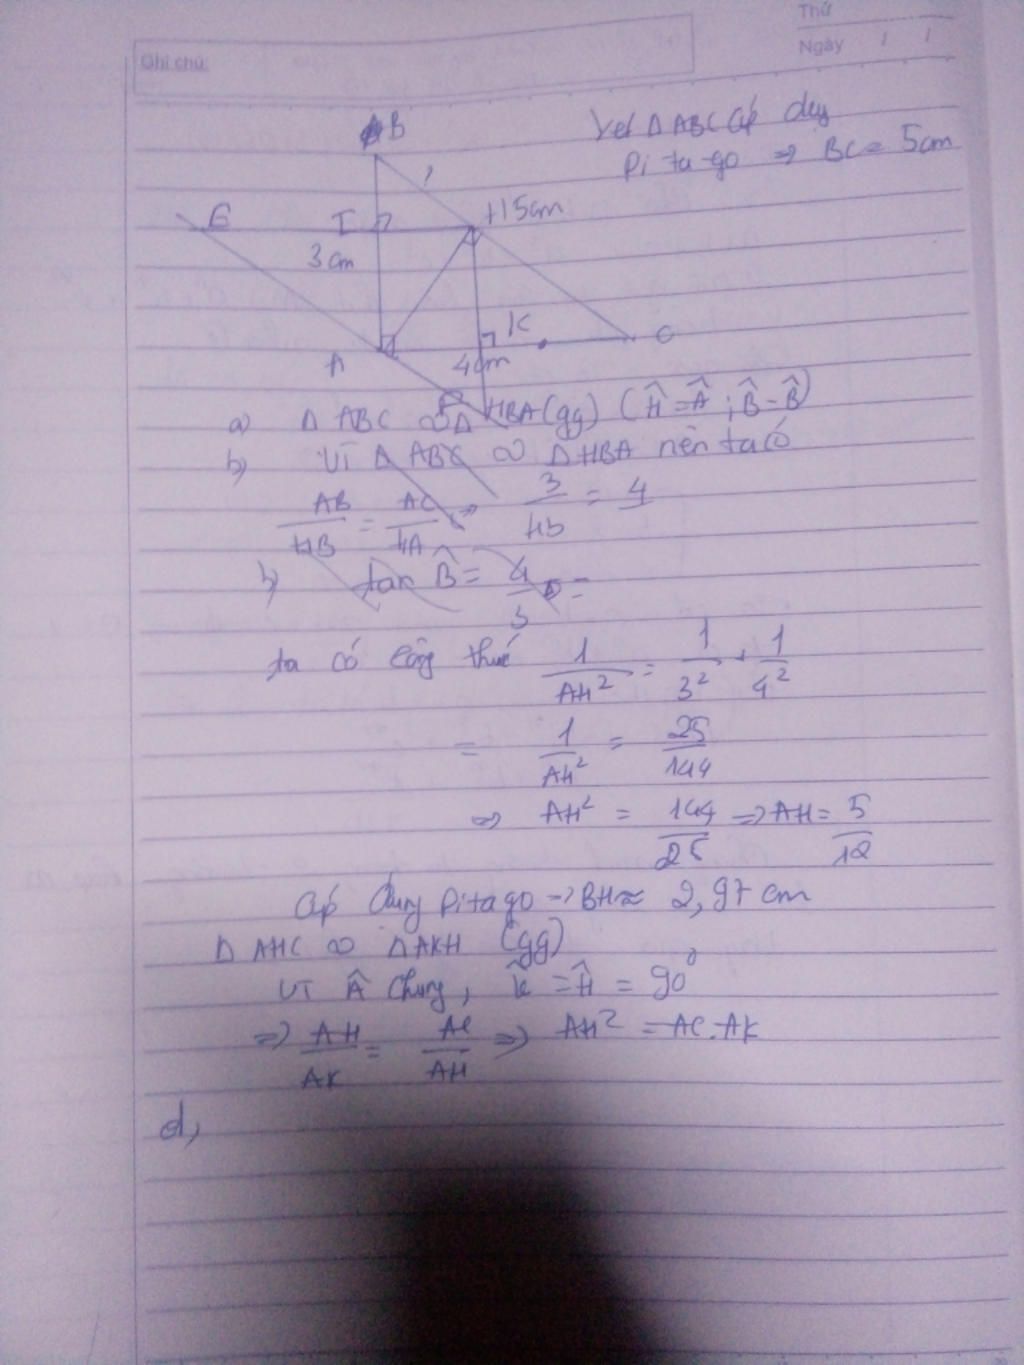 Thứ
Ngày / /
Ghi chú:
B
Xét Δ ABC áp dụg
Pi ta go => BC = 5cm
E
I
H 5cm
3 cm
K
A
4cm
C
a) Δ ABC ∽ Δ HBA (gg) (Ĥ = Â ; B̂ = B̂)
b) Vì Δ ABC ∽ Δ HBA nên ta có
AB/HB = AC/HA => 3/Hb = 4
b) tan B̂ = 4/3 =
ta có côg thức 1/AH² = 1/3² + 1/4²
= 1/AH² = 25/144
=> AH² = 144/25 => AH = 5/12
áp dụng Pitago -> BH ≈ 2,97 cm
Δ AHC ∽ Δ AKH (gg)
Vì Â chung, K̂ = Ĥ = 90⁰
=> AH/AK = AC/AH => AH² = AC.AK
d,